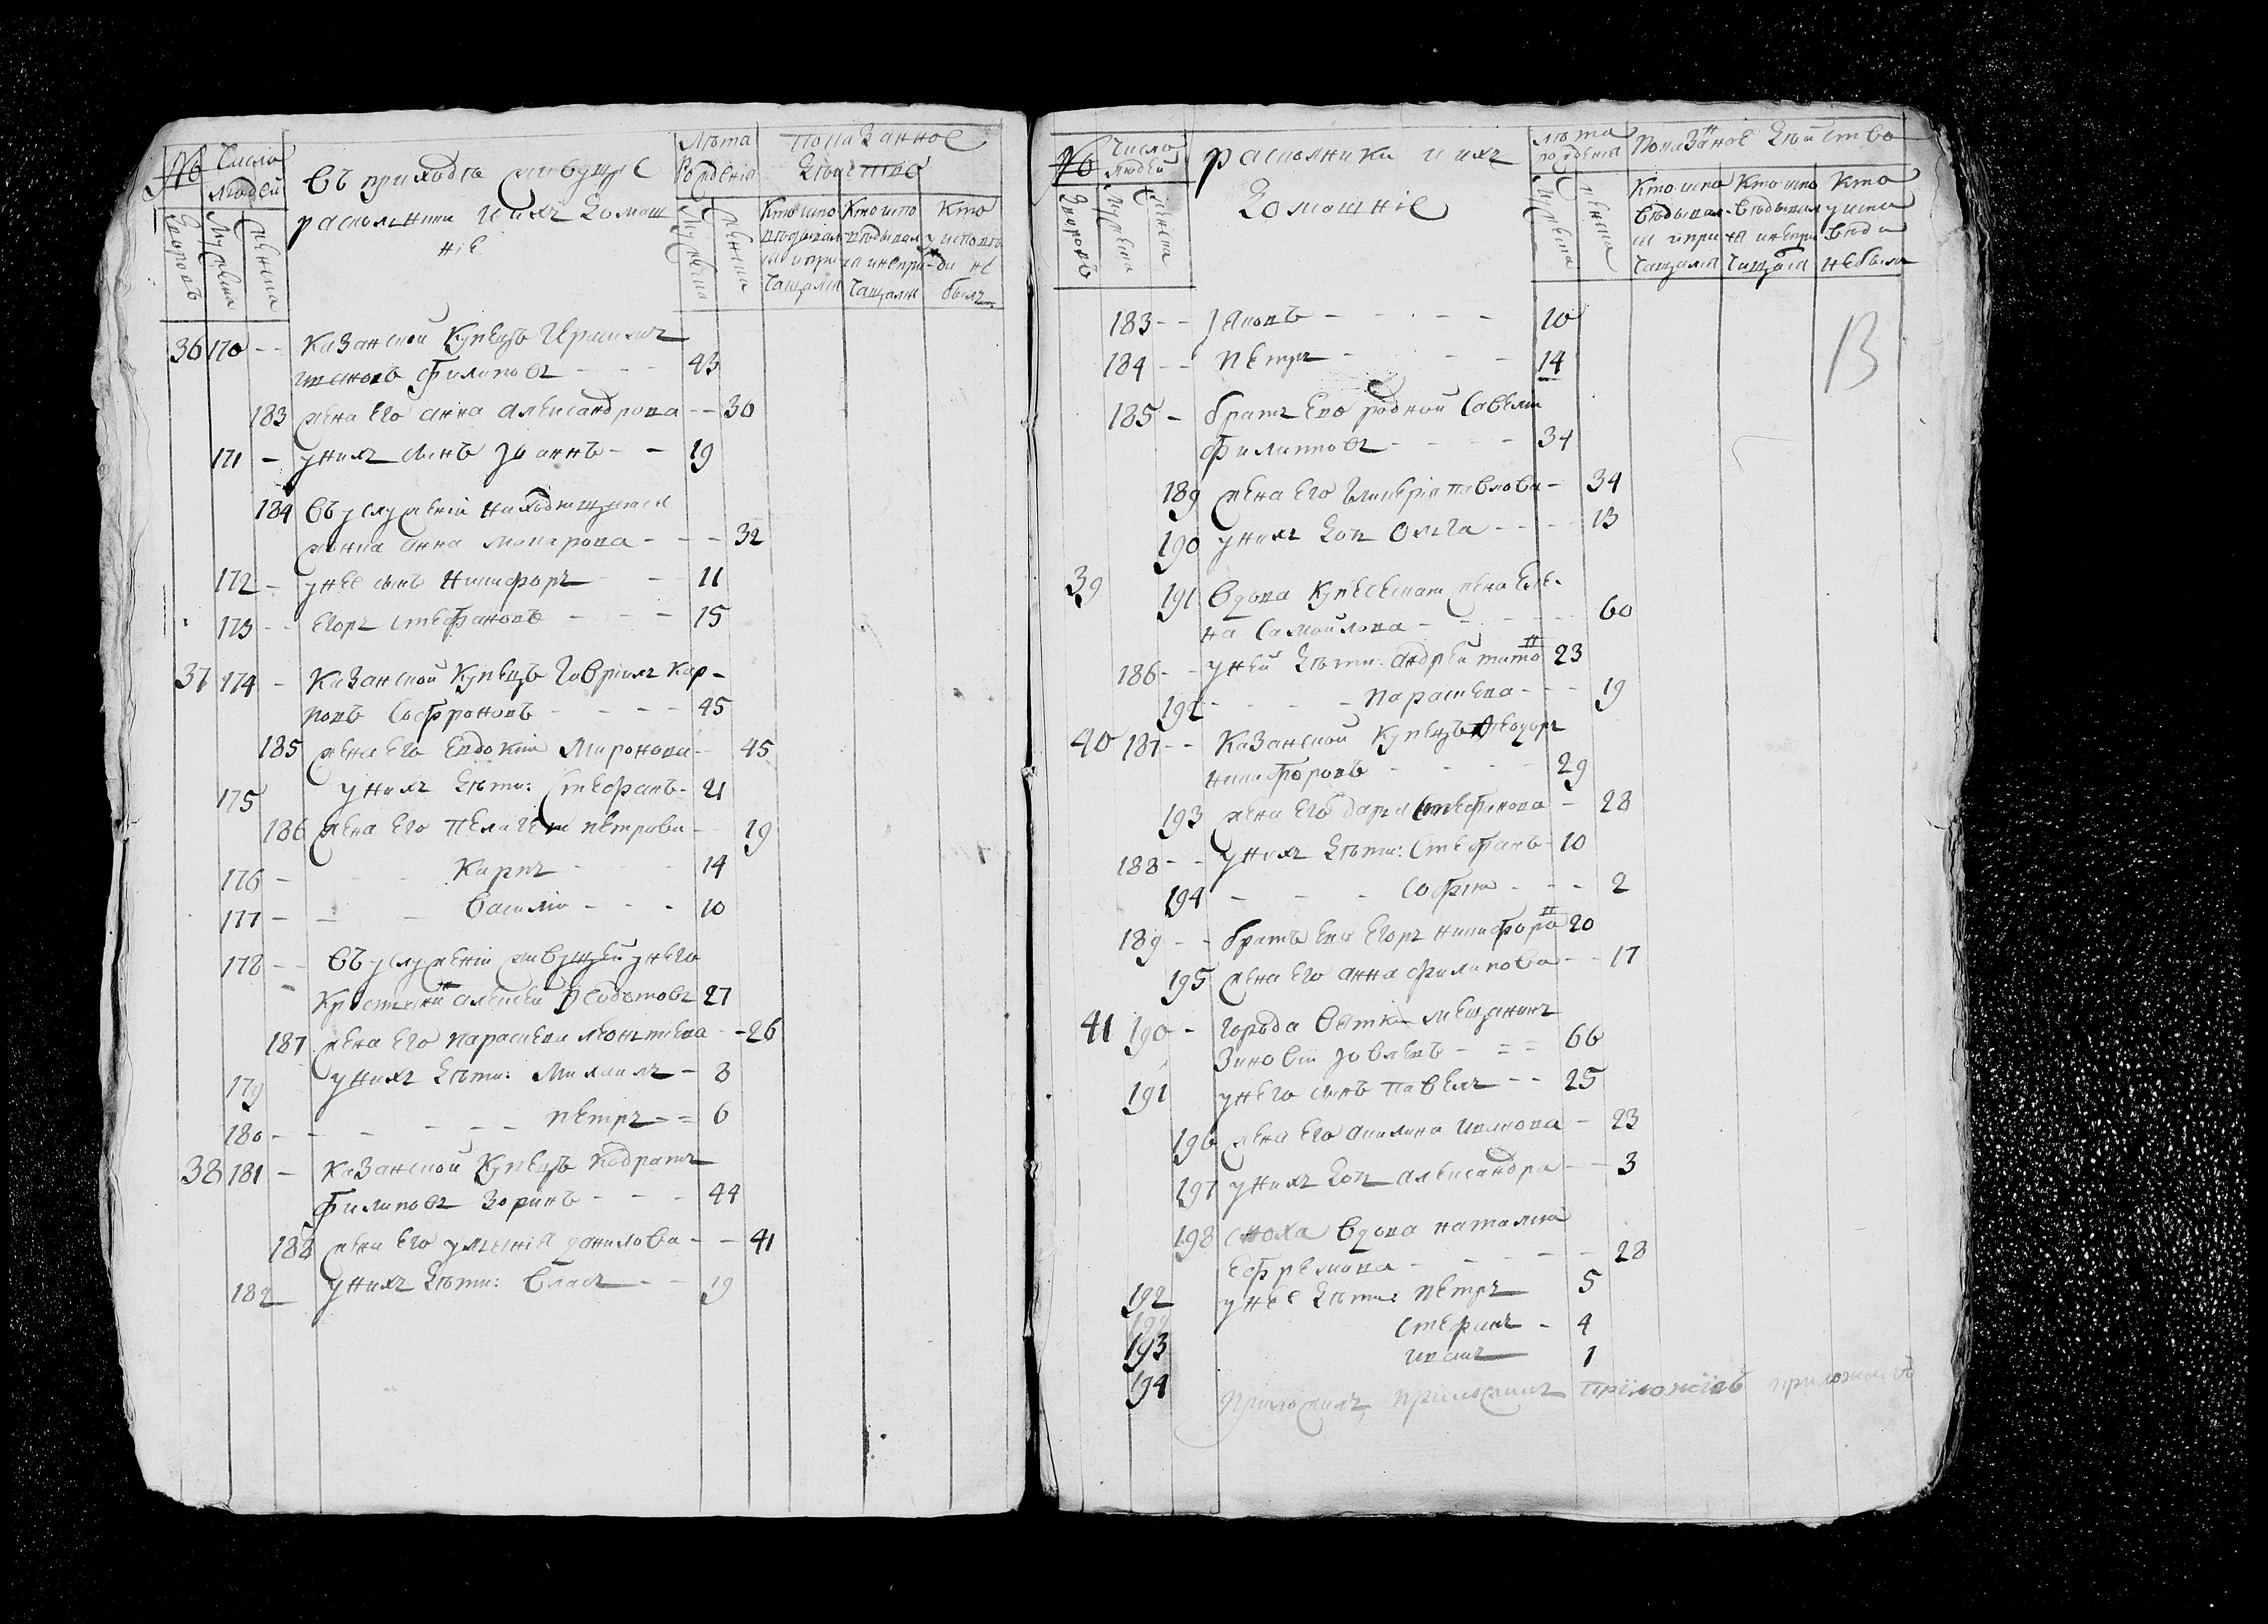 № Число людей
Въ приходѣ живущiе
раскольники и ихъ домаш
нiе
Лѣта рожденiя
Показанное дѣйство
дворовъ
Мужеска
Женска
Мужеска
Женска
Кто испо
вѣдывал
ся и при
чащался
Кто испо
вѣдывал
ся и непри
чащался
Кто
у исповѣ
ди не
былъ
36 170 - - Казанской Купецъ
Филиповъ - - - 43
183 жена его анна александрова - - 30
171 - у нихъ сынъ Iоаннъ - - 19
184 Въ услуженiи находящаяся
жонка анна макарова - - - 32
172 - у нее сынъ Никифоръ - - 11
173 - - Егоръ Стефановъ - - - 15
37 174 - Казанской Купецъ Гаврилъ Кар-
повъ Софроновъ - - - - 45
185 жена его Евдокiя Миронова - - 45
175 у нихъ дѣти: Стефанъ - 21
186 жена его Пелагея петрова - - 19
176 - - - Карпъ - - - 14
177 - - - Василiи - - - 10
178 - - Въ услуженiи живущей у него
алексеи Федотовъ 27
187 жена его парасковя леонтиева - - 26
179 у нихъ дѣти: Михаилъ - 8
180 - - - - - - петръ - = 6
38 181 - Казанской Купецъ Кодратъ
Филиповъ Зоринъ - - - 44
188 жена его данилова - - 41
182 у нихъ дѣти: Власъ - - 19
№ Число людей
раскольники и ихъ
домашнiе
лѣта рожденiя
Показаное дѣйство
дворовъ
Мужеска
женска
Мужеска
женска
Кто испо
вѣдывал-
ся и при
чащался
Кто испо
вѣдывал
ся и непри
чащался
Кто
у испо
вѣди
небыли
13
183 - - Iаковъ - - - - - 10
184 - - Петръ - - - 14
185 - братъ ево родной Савелiи
Филиповъ - - - - 34
189 жена его Гликерiя павлова - 34
190 у нихъ дочь Олга - - - - 13
39 191 вдова купеческая жена Еле-
на Самойлова - - - - - 60
186 - - у ней дѣти: андрей тито 23
192 - - - - Параскева - - - 19
40 187 - - Казанской Купецъ Феодоръ
никифоровъ - - - - 29
193 жена его дарья Стефанова - 28
188 - - у нихъ дѣти: Стефанъ - 10
194 - - - Софiя - - - 2
189 - - братъ ево Егоръ никифоро 20
195 жена его анна филипова - - 17
41 190 - города Вятки мещанинъ
Зиновiи - = = 66
191 у него сынъ Павелъ - - 25
196 жена его акилина иванова - 23
197 у нихъ дочь александра - - 3
198 сноха вдова наталия
Ефремова - - - - - 28
192 у нее дѣти: петръ 5
193 Стефанъ - 4
194 иванъ 1